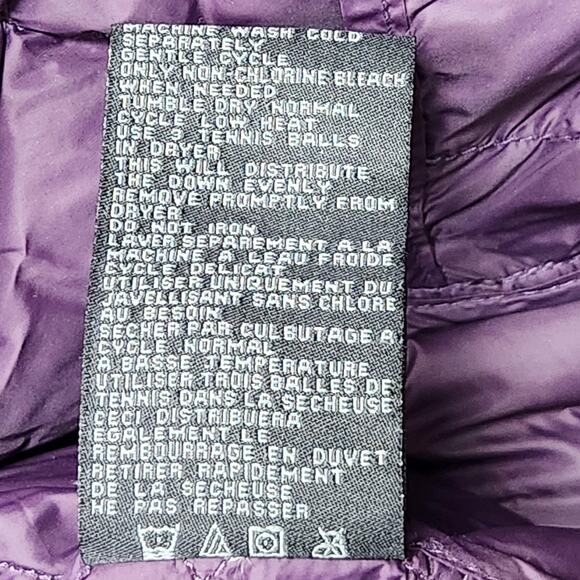 MACHINE WASH COLD
SEPARATELY
GENTLE CYCLE
ONLY NON CHLORINE BLEACH
WHEN NEEDED
TUMBLE DRY NORMAL
CYCLE LOW HEAT
USE 3 TENNIS BALLS
IN DRYER
THIS WILL DISTRIBUTE
THE DOWN EVENLY
REMOVE PROMPTLY FROM
DRYER
DO NOT IRON
LAVER SEPAREMENT A LA
MACHINE A LEAU FROIDE
CYCLE DELICAT
UTILISER UNIQUEMENT DU
JAVELLISANT SANS CHLORE
AU BESOIN
SECHER PAR CULBUTAGE A
CYCLE NORMAL
A BASSE TEMPERATURE
UTILISER TROIS BALLES DE
TENNIS DANS LA SECHEUSE
CECI DISTRIBUERA
EGALEMENT LE
REMBOURRAGE EN DUVET
RETIRER RAPIDEMENT
DE LA SECHEUSE
NE PAS REPASSER